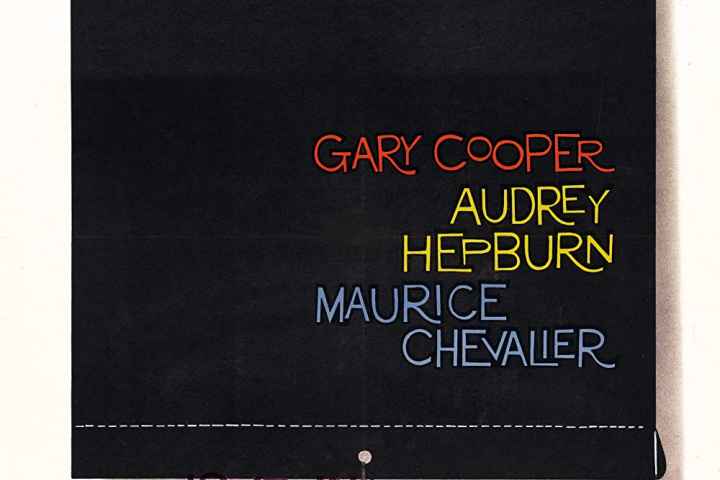 GARY COOPER
AUDREY
HEPBURN
MAURICE
CHEVALIER